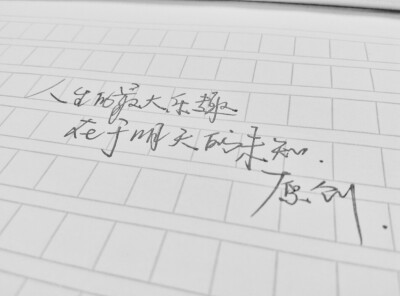 人生的最大乐趣
在于明天的未知.
原创.